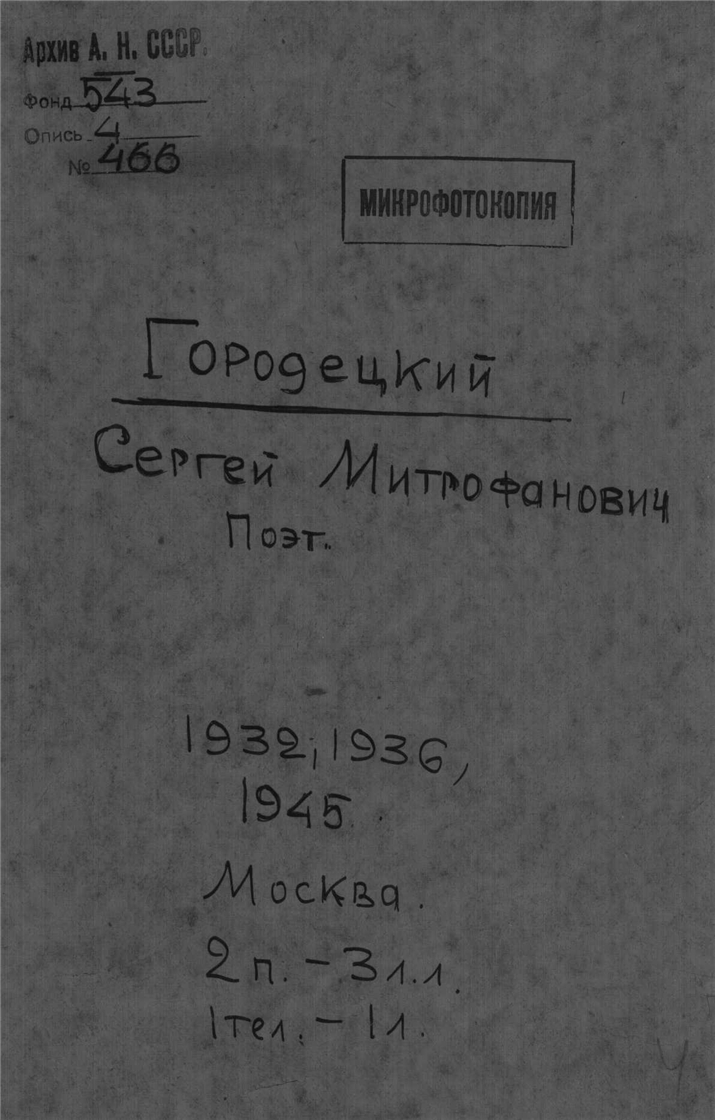 Архив А. Н. СССР.
Фонд 543
Опись 4
№ 466
МИКРОФОТОКОПИЯ
Городецкий
Сергей Митрофанович
Поэт.
1932; 1936,
1945.
Москва.
2 п. – 3 л.л.
1 тел. – 1 л.